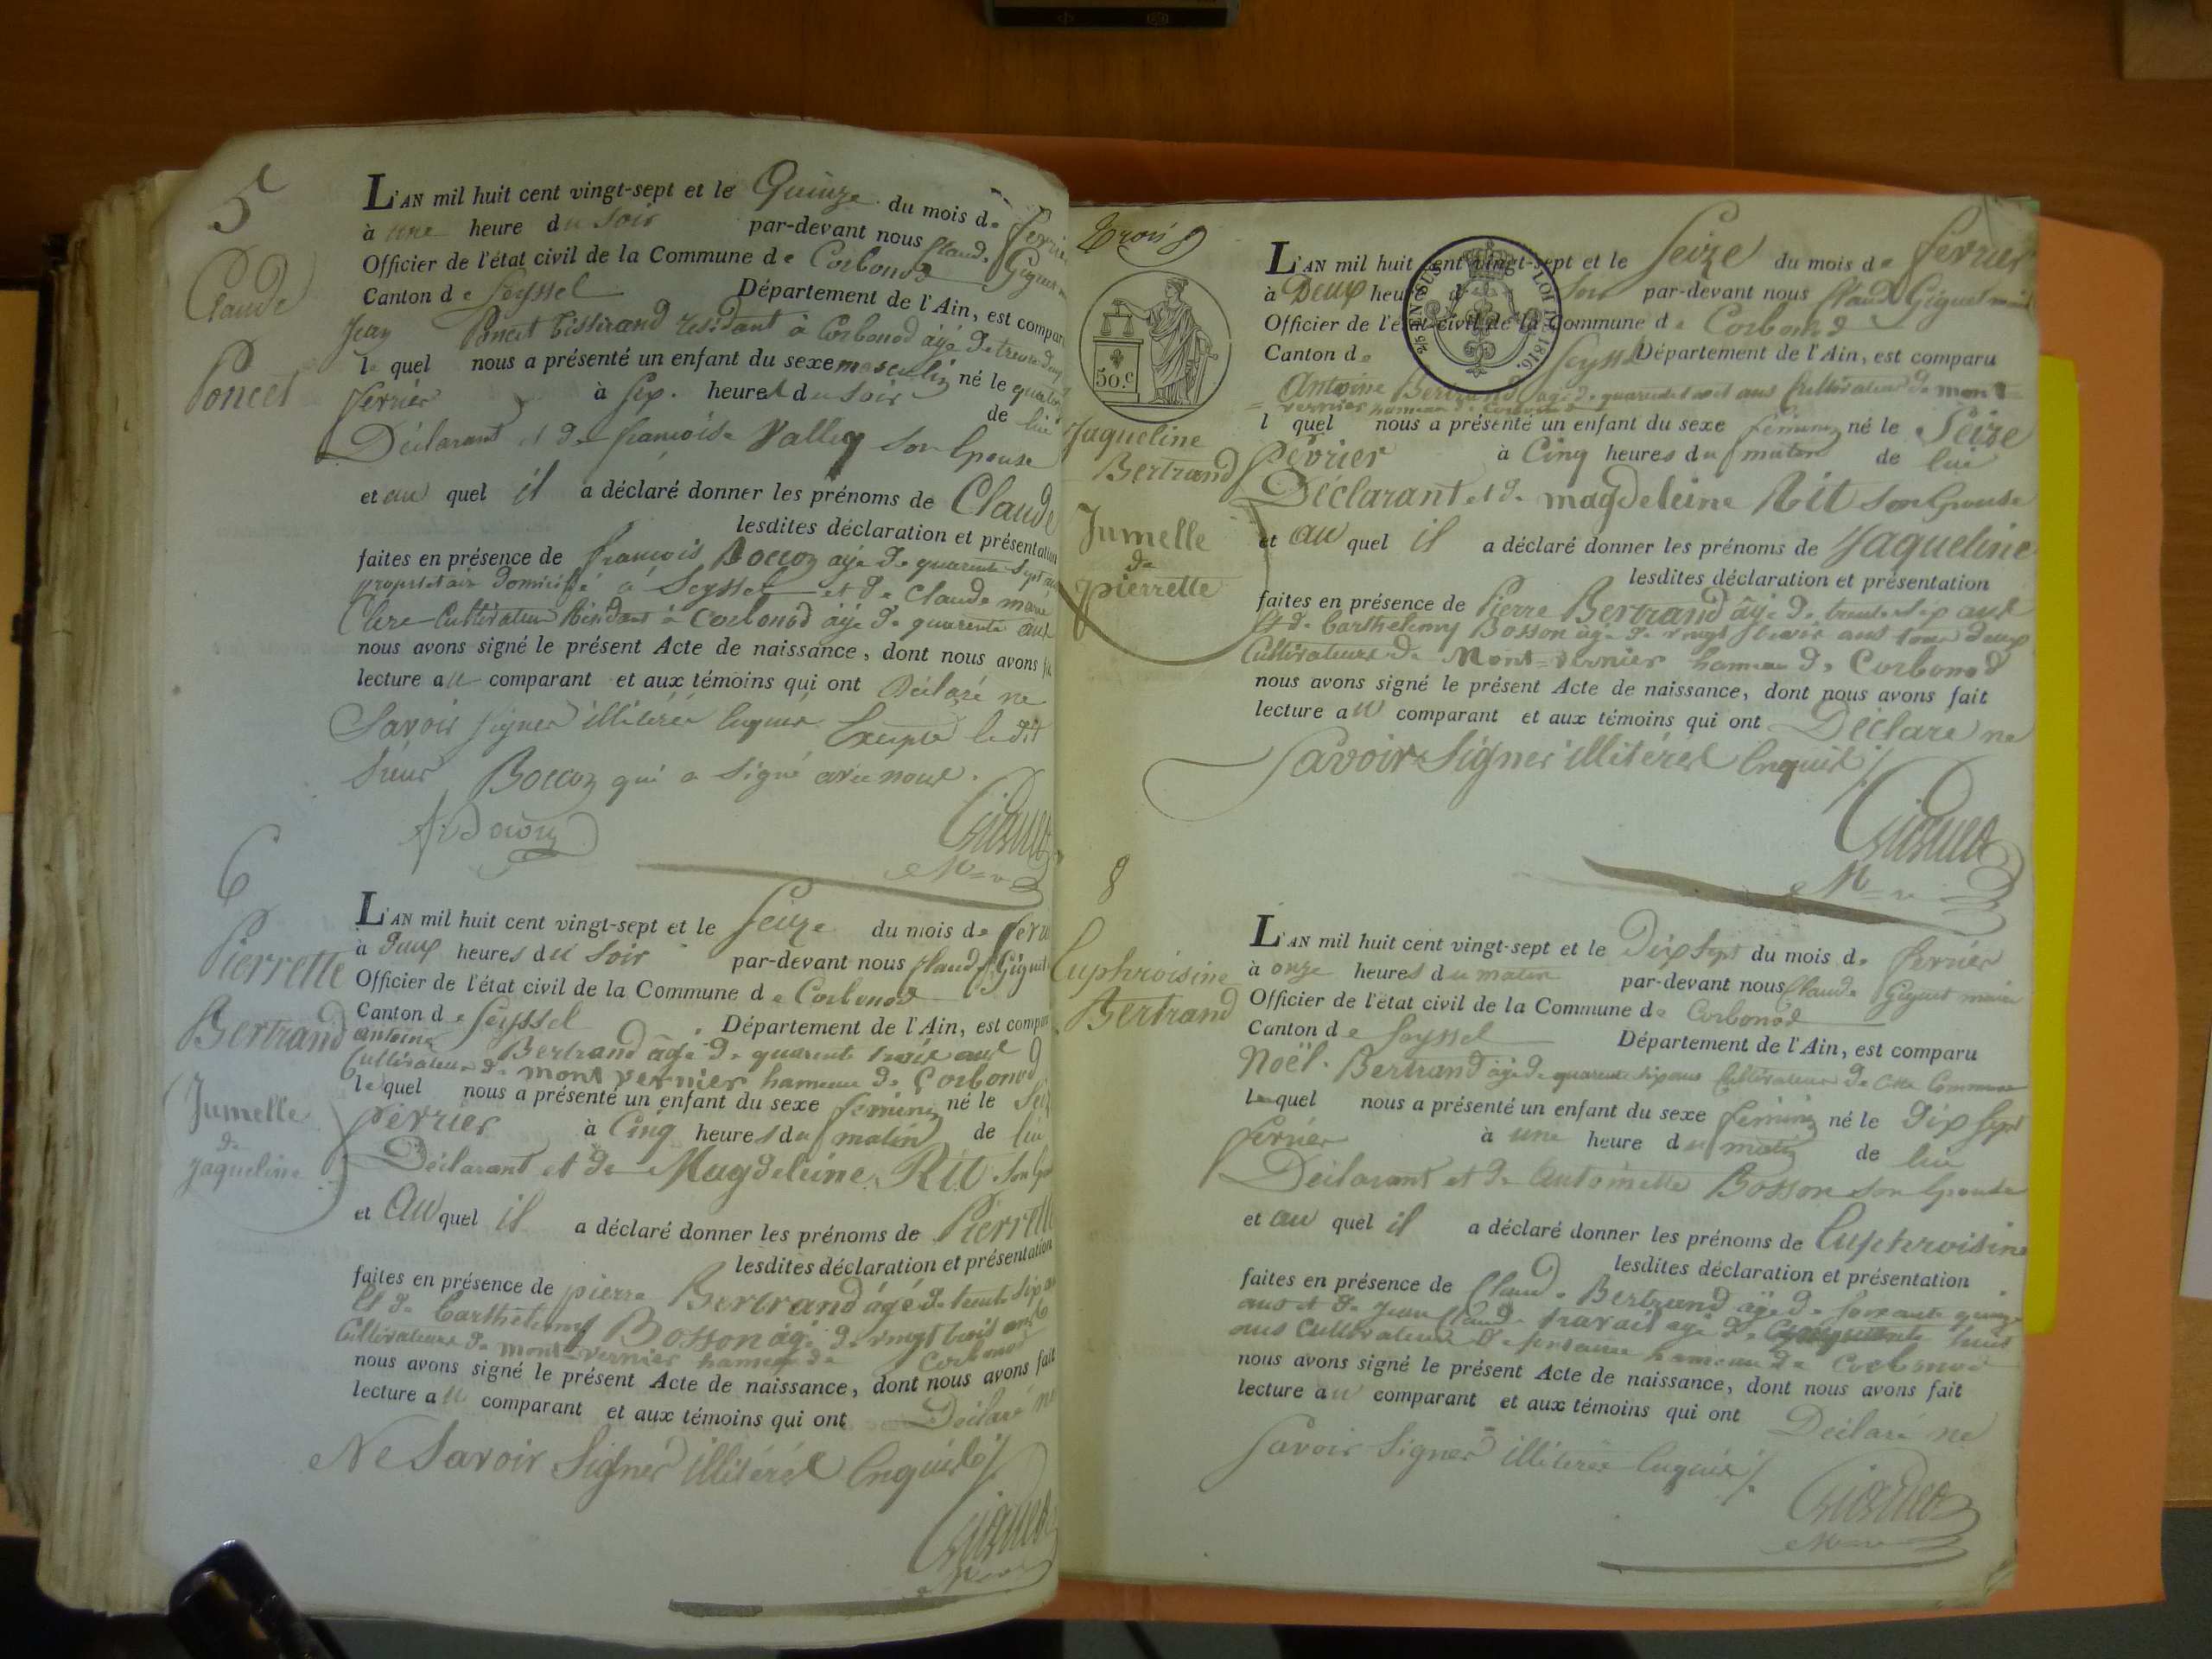 5
Claude
Poncet
L'AN mil huit cent vingt-sept et le Quinze du mois de fevrier
à une heure du Soir par-devant nous Claude Giguet
Officier de l'état civil de la Commune de Corbonod
Canton de Seyssel Département de l'Ain, est compar
Jean Poncet tisserand residant à Corbonod âgé de
le quel nous a présenté un enfant du sexe masculin né le
fevrier à Six heures du Soir de lui
Déclarant et de francoise Vallet son Epouse
et au quel il a déclaré donner les prénoms de Claude
lesdites déclaration et présentation
faites en présence de francois Boccoz âgé de quarante sept ans
propriétaire domicilié à Seyssel et de Claude marie
Clerc Cultivateur Résidant à Corbonod âgé de quarante ans
nous avons signé le présent Acte de naissance, dont nous avons
lecture au comparant et aux témoins qui ont Déclaré ne
Savoir signer illitéré Enquis Excepté le dit
Sieur Boccoz qui a signé avec nous.
Giguet
6
Pierrette
Bertrand
Jumelle
de
Jaqueline
L'AN mil huit cent vingt-sept et le Seize du mois de
à deux heures du Soir par-devant nous Claude Giguet
Officier de l'état civil de la Commune de Corbonod
Canton de Seyssel Département de l'Ain, est compar
antoine Bertrand âgé de quarante trois ans
Cultivateur de mont vernier hameau de Corbonod
le quel nous a présenté un enfant du sexe feminin né le Seiz
fevrier à Cinq heures du matin de lui
Déclarant et de Magdeleine Rit son
et Au quel il a déclaré donner les prénoms de Pierrette
lesdites déclaration et présentation
faites en présence de pierre Bertrand âgé de trente Six
Et de Barthelemy Bosson âgé de vingt trois ans
Cultivateurs de mont-vernier hameau de Corbonod
nous avons signé le présent Acte de naissance, dont nous avons fait
lecture au comparant et aux témoins qui ont Déclaré ne
Ne Savoir Signer illitérés Enquis ./.
Giguet
Trois
50.C
LOI DE 1816.
Jaqueline
Bertrand
Jumelle
de
pierrette
L'AN mil huit cent vingt-sept et le Seize du mois de fevrier
à Deux heure du Soir par-devant nous Claude Giguet maire
Officier de l'état civil de la Commune de Corbonod
Canton de Seyssel Département de l'Ain, est comparu
Antoine Bertrand âgé de quarante trois ans Cultivateur de mont=
=vernier hameau de Corbonod
l quel nous a présenté un enfant du sexe féminin né le Seize
fevrier à Cinq heures du matin de lui
Déclarant et de magdeleine Rit son Epouse
et au quel il a déclaré donner les prénoms de Jaqueline
lesdites déclaration et présentation
faites en présence de Pierre Bertrand âgé de trente Six ans
Et de Barthelemy Bosson âgé de vingt trois ans tous deux
Cultivateurs de Mont=vernier hameau de Corbonod
nous avons signé le présent Acte de naissance, dont nous avons fait
lecture au comparant et aux témoins qui ont Déclaré ne
Savoir Signer illitérés Enquis ./.
Giguet
8
Euphroisine
Bertrand
L'AN mil huit cent vingt-sept et le Dix Sept du mois de fevrier
à onze heures du matin par-devant nous Claude Giguet maire
Officier de l'état civil de la Commune de Corbonod
Canton de Seyssel Département de l'Ain, est comparu
Noël Bertrand âgé de quarante six ans Cultivateur de cette Commune
Le quel nous a présenté un enfant du sexe féminin né le Dix Sept
fevrier à une heure du matin de lui
Déclarant et de antoinette Bosson son Epouse
et au quel il a déclaré donner les prénoms de Euphroisine
lesdites déclaration et présentation
faites en présence de Claude Bertrand âgé de soixante quinze
ans et de Jean Claude travail âgé de Cinquante huit
ans Cultivateurs de hameau de Corbonod
nous avons signé le présent Acte de naissance, dont nous avons fait
lecture au comparant et aux témoins qui ont Déclaré ne
Savoir Signer illitérés Enquis ./.
Giguet